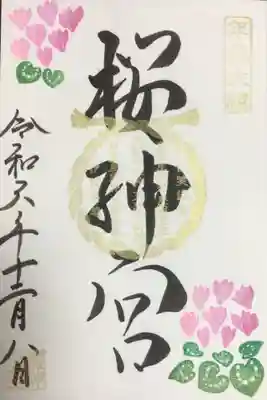 桜神宮
令和六年十二月八日